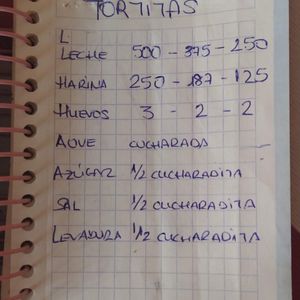 TORTITAS
L
LECHE 500 - 375 - 250
HARINA 250 - 187 - 125
HUEVOS 3 - 2 - 2
AOVE CUCHARADA
AZÚCAR 1/2 CUCHARADITA
SAL 1/2 CUCHARADITA
LEVADURA 1/2 CUCHARADITA